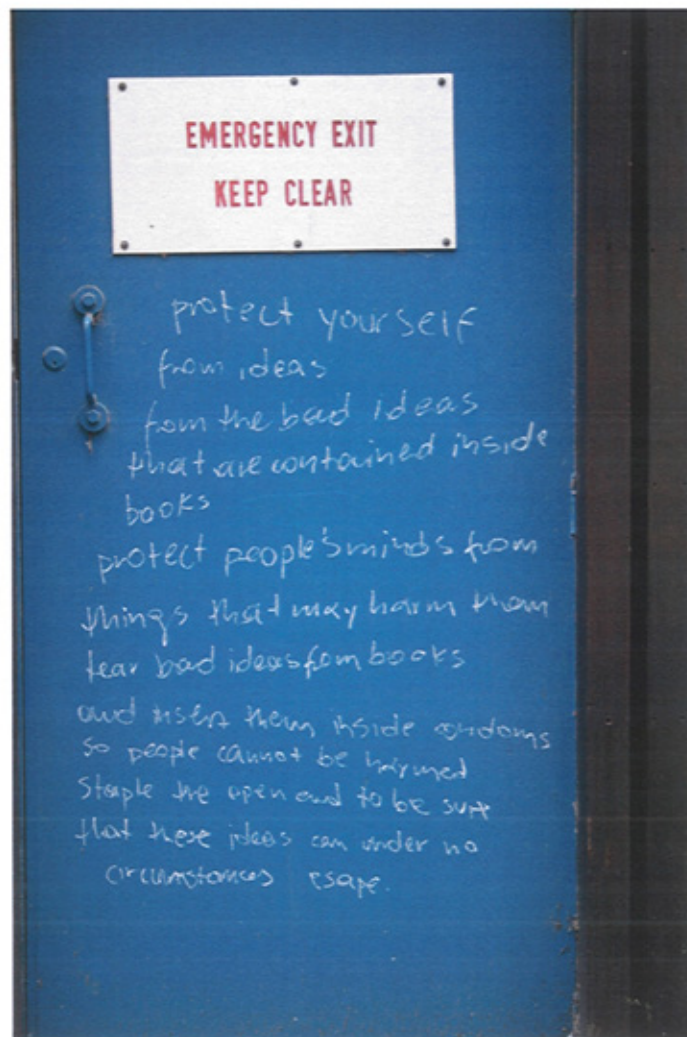 EMERGENCY EXIT
KEEP CLEAR
protect yourself
from ideas
from the bad ideas
that are contained inside
books
protect people's minds from
things that may harm them
tear bad ideas from books
and insert them inside condoms
so people cannot be harmed
staple the open end to be sure
that these ideas can under no
circumstances esape.